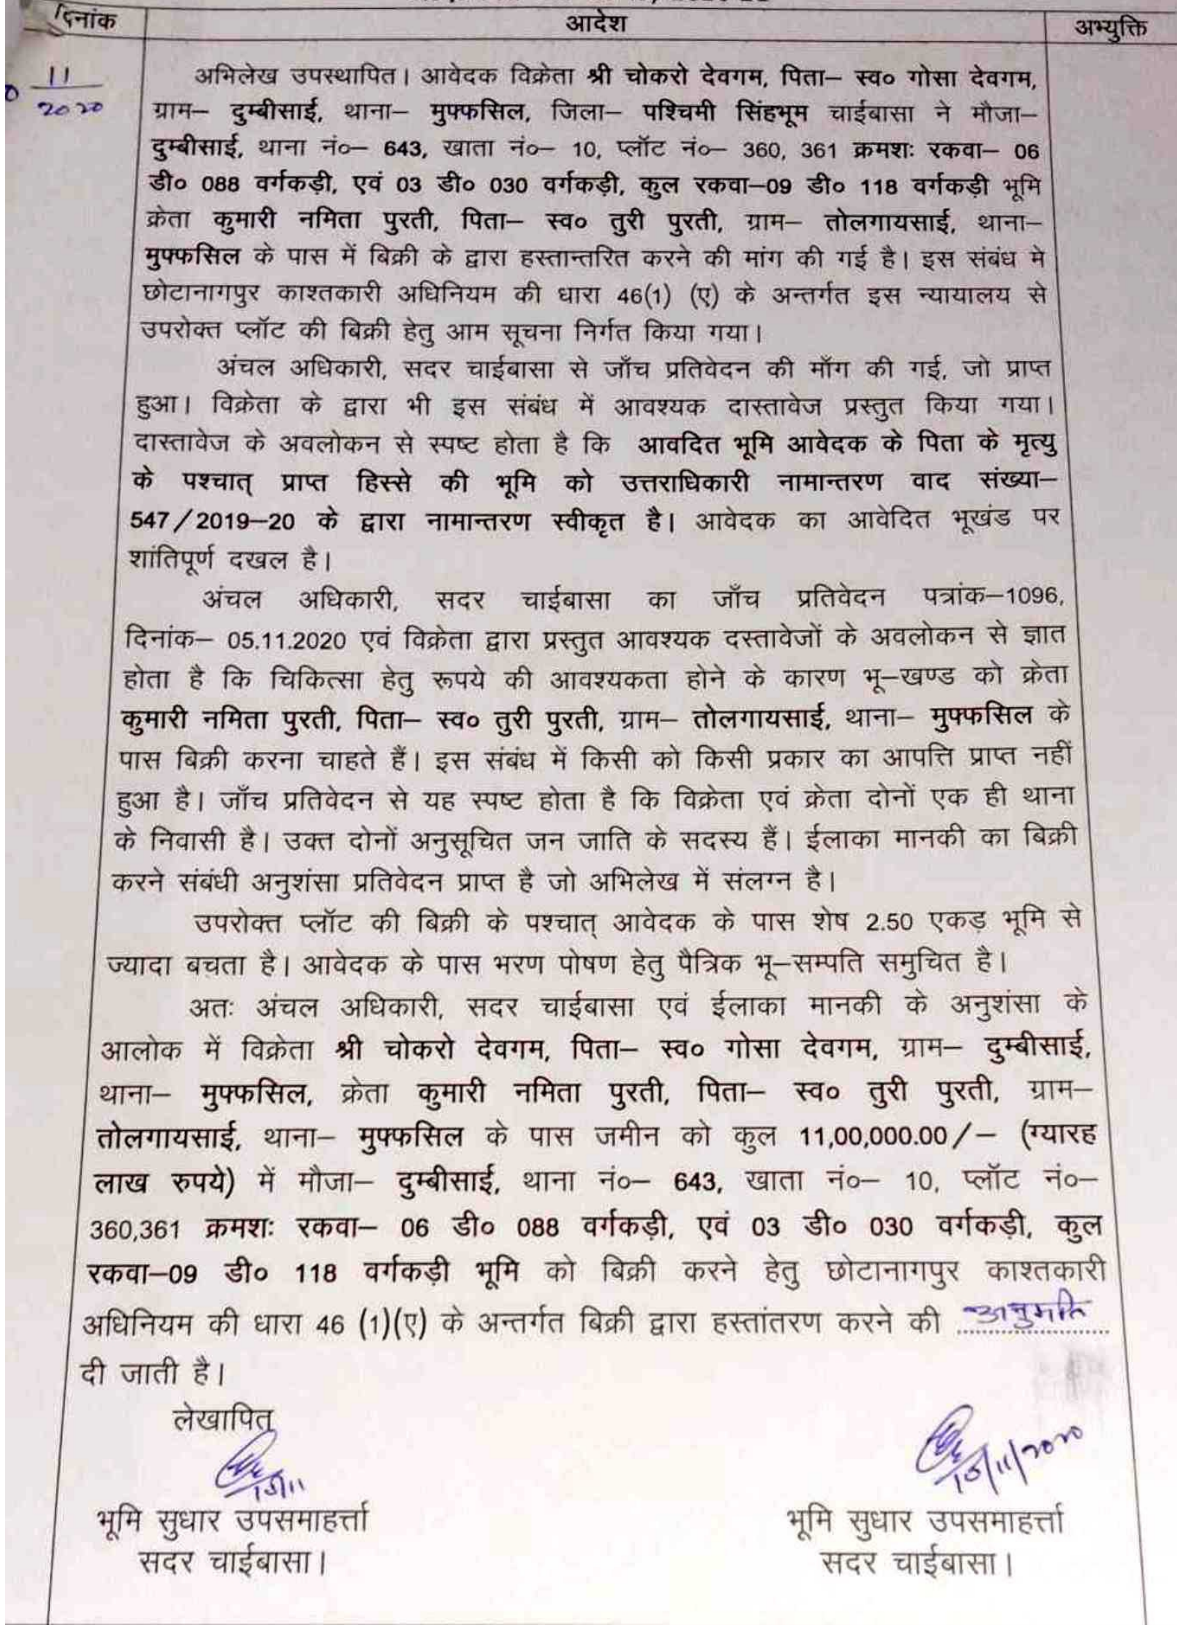 दिनांक आदेश अभ्युक्ति
11
2020
अभिलेख उपस्थापित। आवेदक विक्रेता श्री चोकरो देवगम, पिता– स्व० गोसा देवगम,
ग्राम– दुम्बीसाई, थाना– मुफ्फसिल, जिला– पश्चिमी सिंहभूम चाईबासा ने मौजा–
दुम्बीसाई, थाना नं०– 643, खाता नं०– 10, प्लॉट नं०– 360, 361 क्रमशः रकवा– 06
डी० 088 वर्गकड़ी, एवं 03 डी० 030 वर्गकड़ी, कुल रकवा–09 डी० 118 वर्गकड़ी भूमि
क्रेता कुमारी नमिता पुरती, पिता– स्व० तुरी पुरती, ग्राम– तोलगायसाई, थाना–
मुफ्फसिल के पास में बिक्री के द्वारा हस्तान्तरित करने की मांग की गई है। इस संबंध मे
छोटानागपुर काश्तकारी अधिनियम की धारा 46(1) (ए) के अन्तर्गत इस न्यायालय से
उपरोक्त प्लॉट की बिक्री हेतु आम सूचना निर्गत किया गया।
अंचल अधिकारी, सदर चाईबासा से जाँच प्रतिवेदन की माँग की गई, जो प्राप्त
हुआ। विक्रेता के द्वारा भी इस संबंध में आवश्यक दास्तावेज प्रस्तुत किया गया।
दास्तावेज के अवलोकन से स्पष्ट होता है कि आवदित भूमि आवेदक के पिता के मृत्यु
के पश्चात् प्राप्त हिस्से की भूमि को उत्तराधिकारी नामान्तरण वाद संख्या–
547/2019–20 के द्वारा नामान्तरण स्वीकृत है। आवेदक का आवेदित भूखंड पर
शांतिपूर्ण दखल है।
अंचल अधिकारी, सदर चाईबासा का जाँच प्रतिवेदन पत्रांक–1096,
दिनांक– 05.11.2020 एवं विक्रेता द्वारा प्रस्तुत आवश्यक दस्तावेजों के अवलोकन से ज्ञात
होता है कि चिकित्सा हेतु रूपये की आवश्यकता होने के कारण भू–खण्ड को क्रेता
कुमारी नमिता पुरती, पिता– स्व० तुरी पुरती, ग्राम– तोलगायसाई, थाना– मुफ्फसिल के
पास बिक्री करना चाहते हैं। इस संबंध में किसी को किसी प्रकार का आपत्ति प्राप्त नहीं
हुआ है। जाँच प्रतिवेदन से यह स्पष्ट होता है कि विक्रेता एवं क्रेता दोनों एक ही थाना
के निवासी है। उक्त दोनों अनुसूचित जन जाति के सदस्य हैं। ईलाका मानकी का बिक्री
करने संबंधी अनुशंसा प्रतिवेदन प्राप्त है जो अभिलेख में संलग्न है।
उपरोक्त प्लॉट की बिक्री के पश्चात् आवेदक के पास शेष 2.50 एकड़ भूमि से
ज्यादा बचता है। आवेदक के पास भरण पोषण हेतु पैत्रिक भू–सम्पति समुचित है।
अतः अंचल अधिकारी, सदर चाईबासा एवं ईलाका मानकी के अनुशंसा के
आलोक में विक्रेता श्री चोकरो देवगम, पिता– स्व० गोसा देवगम, ग्राम– दुम्बीसाई,
थाना– मुफ्फसिल, क्रेता कुमारी नमिता पुरती, पिता– स्व० तुरी पुरती, ग्राम–
तोलगायसाई, थाना– मुफ्फसिल के पास जमीन को कुल 11,00,000.00/– (ग्यारह
लाख रुपये) में मौजा– दुम्बीसाई, थाना नं०– 643, खाता नं०– 10, प्लॉट नं०–
360,361 क्रमशः रकवा– 06 डी० 088 वर्गकड़ी, एवं 03 डी० 030 वर्गकड़ी, कुल
रकवा–09 डी० 118 वर्गकड़ी भूमि को बिक्री करने हेतु छोटानागपुर काश्तकारी
अधिनियम की धारा 46 (1)(ए) के अन्तर्गत बिक्री द्वारा हस्तांतरण करने की अनुमति
दी जाती है।
लेखापित्
10/11 10/11/2020
भूमि सुधार उपसमाहर्त्ता भूमि सुधार उपसमाहर्त्ता
सदर चाईबासा। सदर चाईबासा।